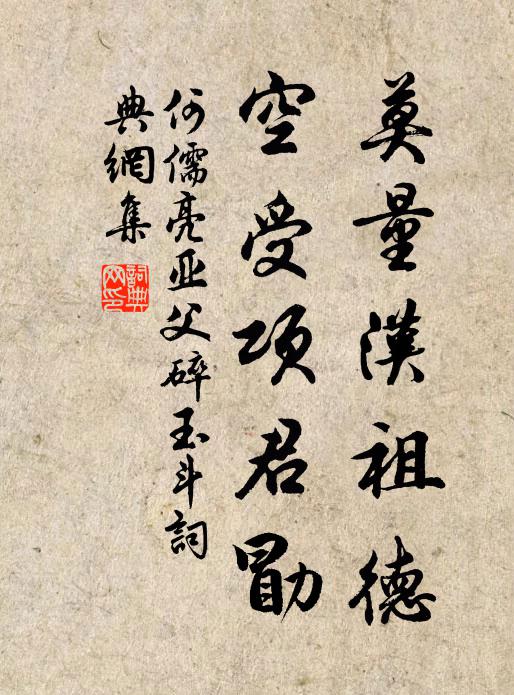 莫量漢祖德
空受項君勖
何儒亮亚父碎玉斗詞
典網集
詞典網印